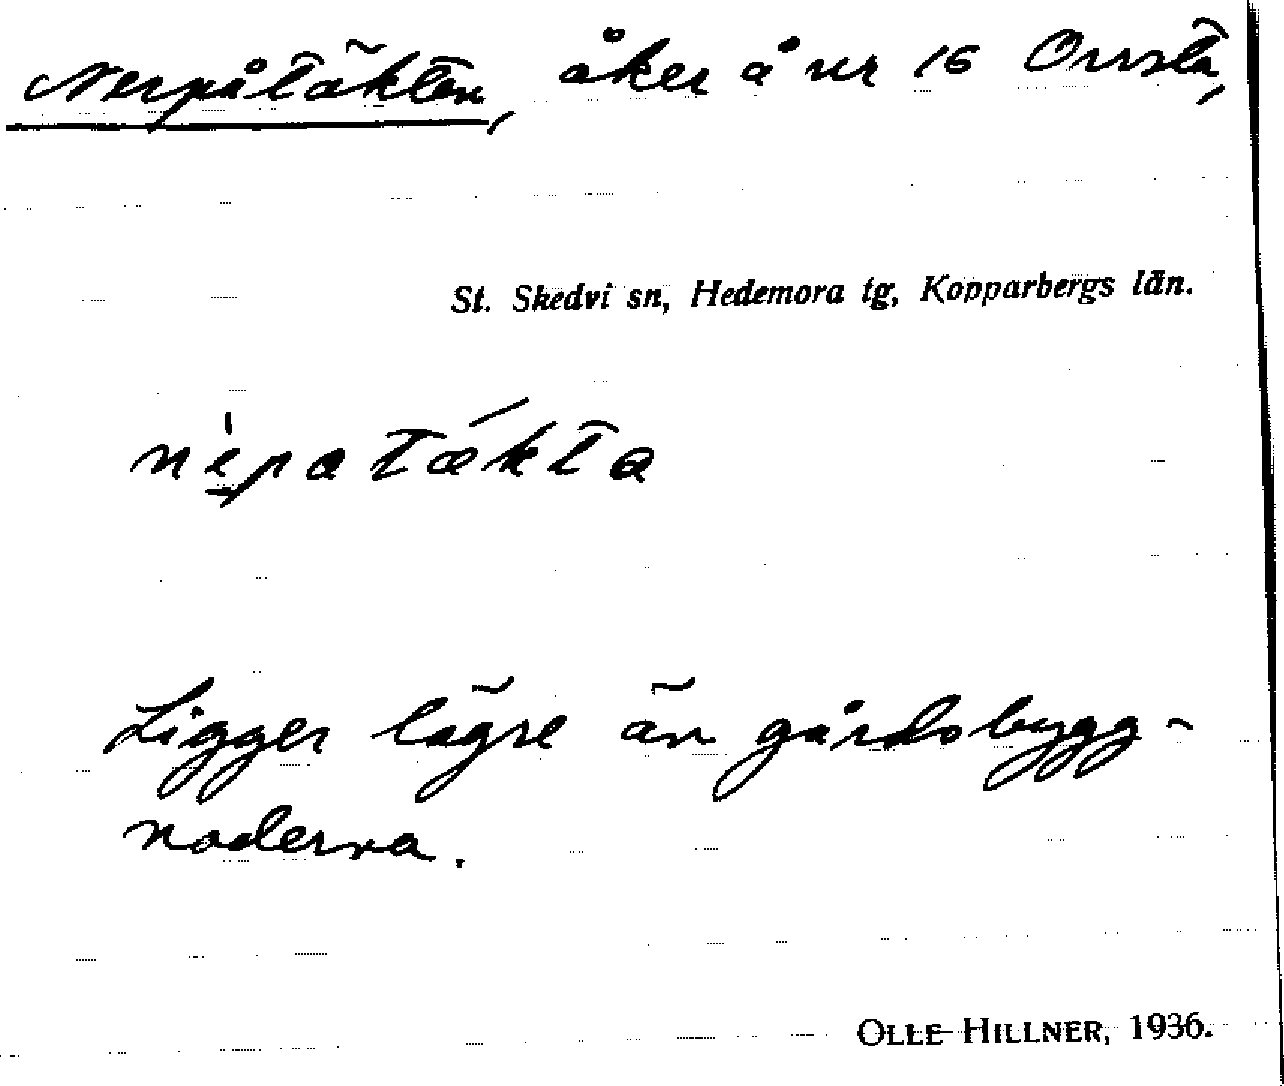 Nerpåtäkten, åker å nr 16 Orrsta,
St. Skedvi sn, Hedemora tg, Kopparbergs län.
nèpatækta
Ligger lägre än gårdsbygg-
naderna.
OLLE HILLNER, 1936.